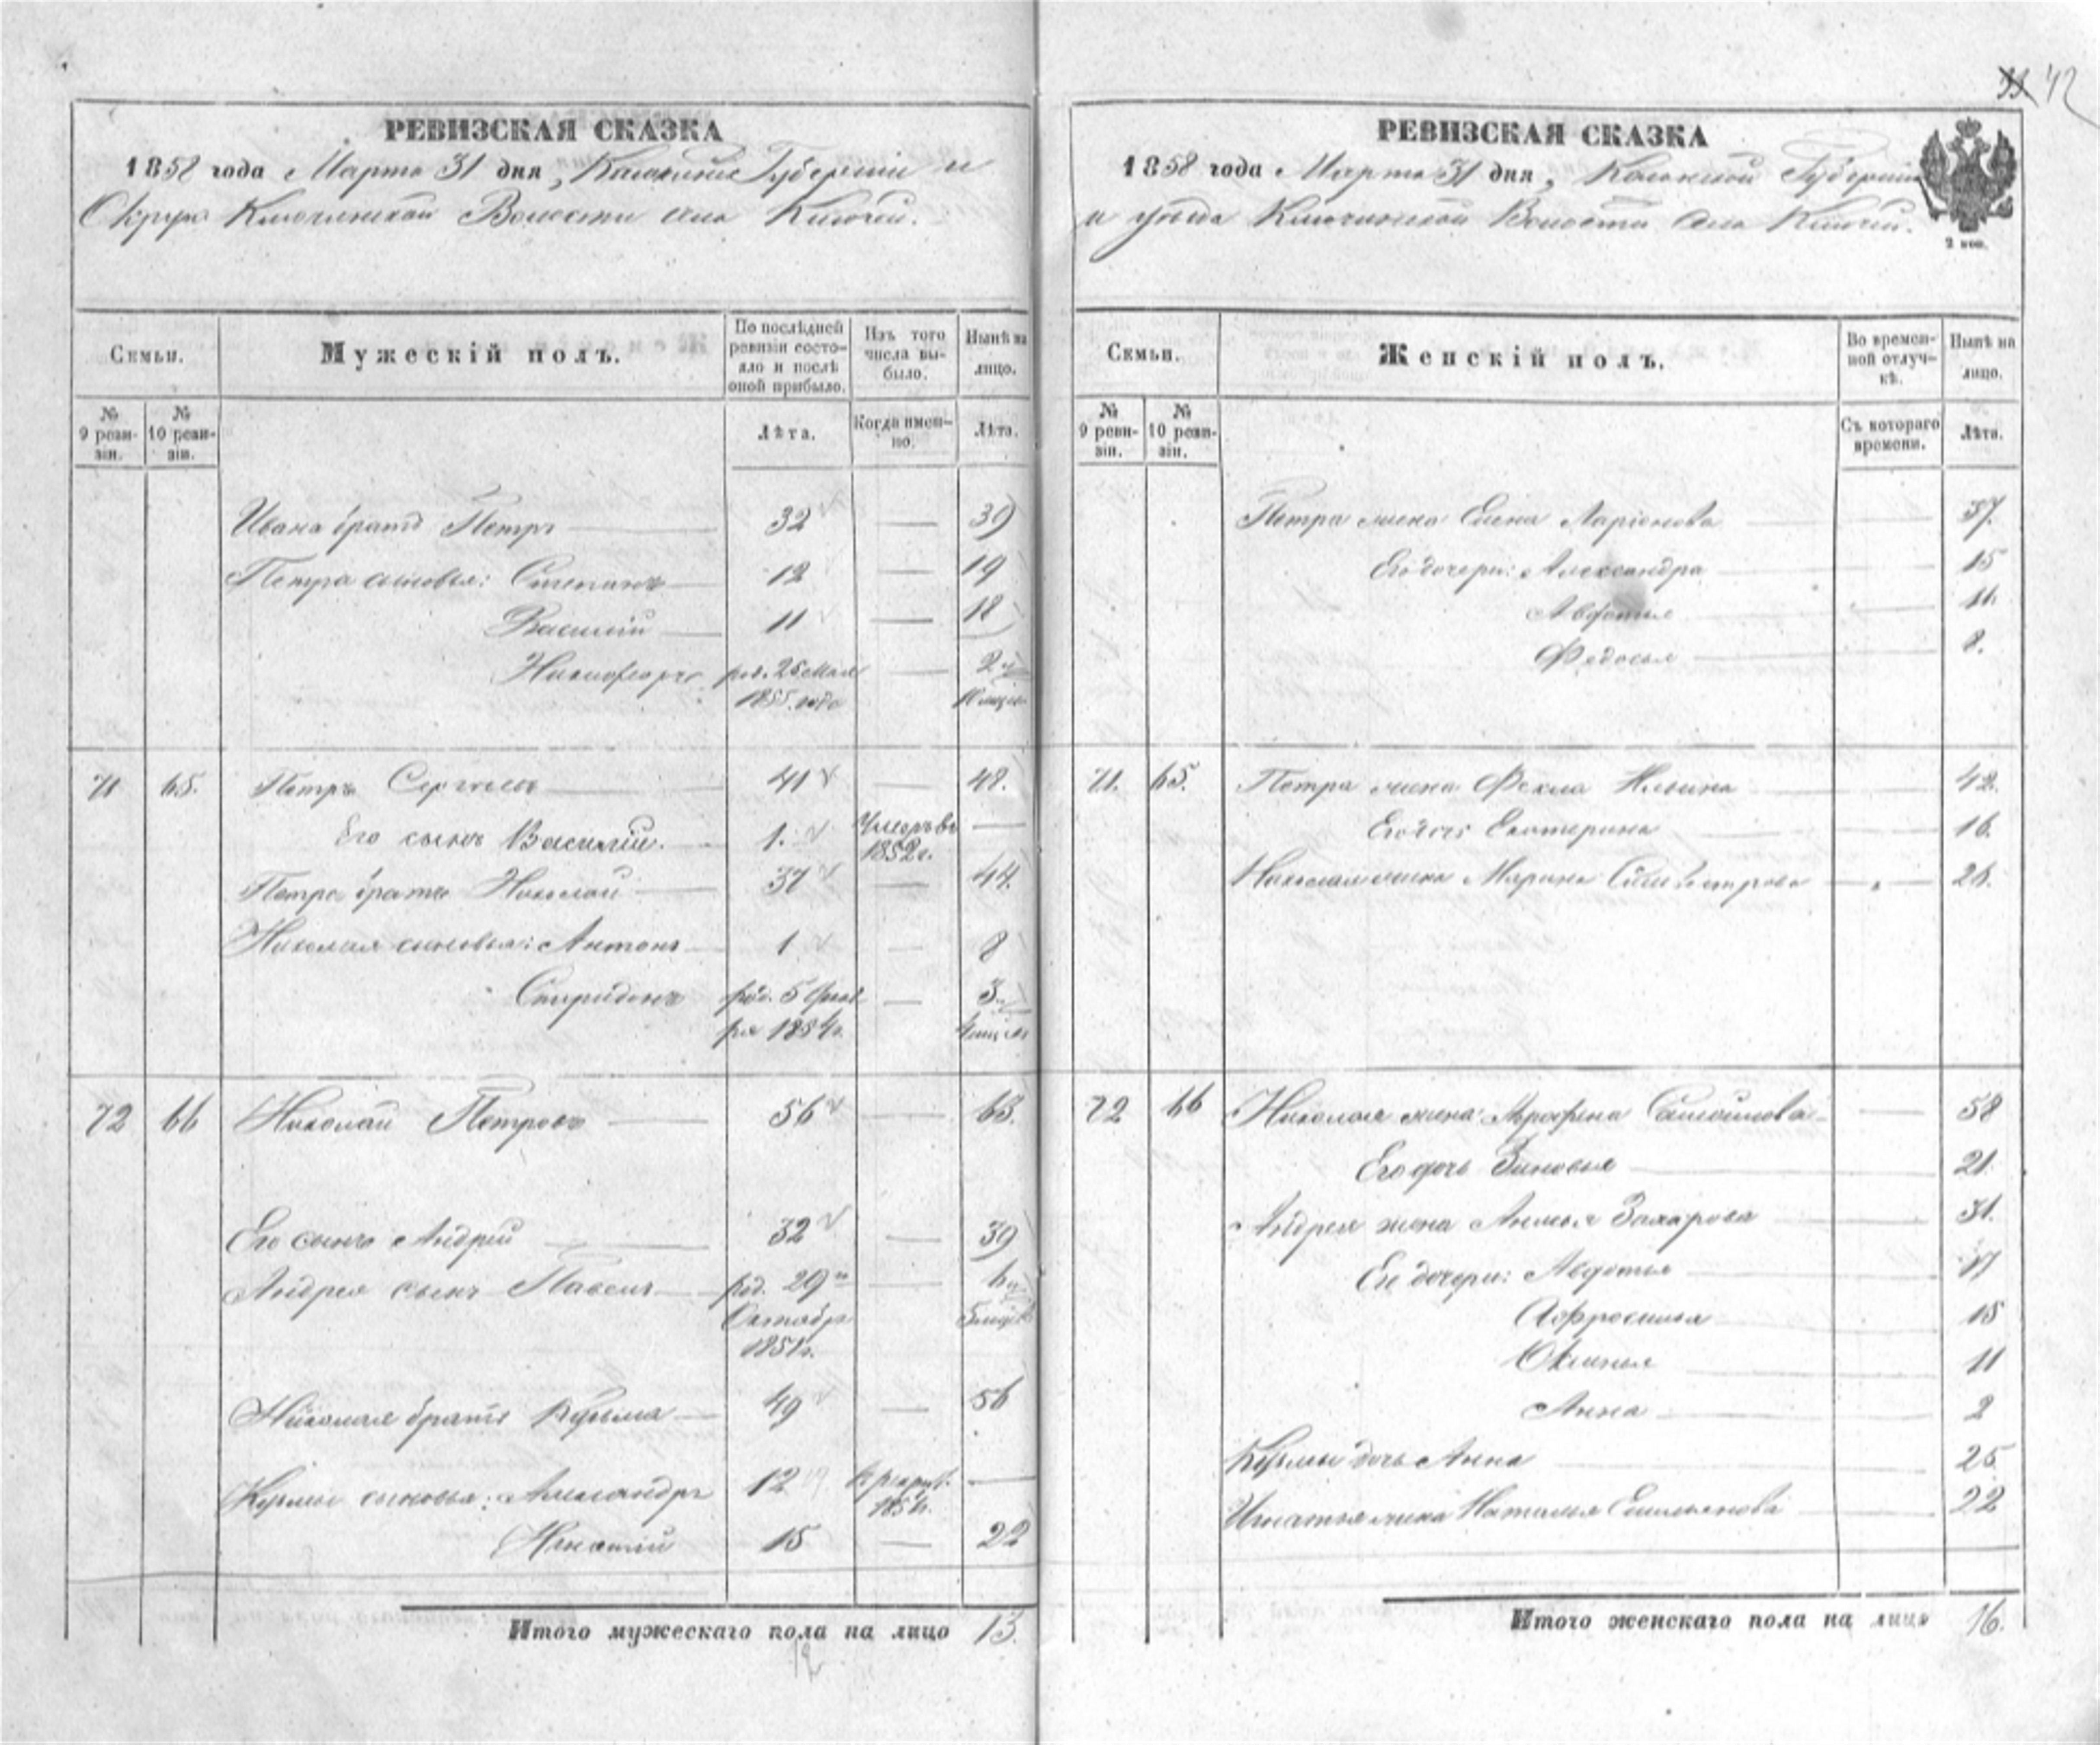 33 42
РЕВИЗСКАЯ СКАЗКА
1858 года Марта 31 дня, Губерніи и
Округа Ключинской Волости села Ключей.
Семьи.
Мужескій полъ.
По послѣдней ревизіи состояло и послѣ оной прибыло.
Изъ того числа выбыло.
Нынѣ на лицо.
№ 9 ревизіи.
№ 10 ревизіи.
Лѣта.
Когда именно.
Лѣта.
Ивана братъ Петръ 32 — 39
Петра сыновья: Степанъ 12 — 19
Василій 11 — 18
Никифоръ род. 25 Мая 1855 года — 2 и 10 мцовъ
71 65. Петръ Сергѣевъ 41 — 48.
Его сынъ Василій. 1. Умеръ въ 1852 г. —
Петра братъ Николай 37 — 44.
Николая сыновья: Антонъ 1 — 8
Спиридонъ род. 5 1854 г. — 3 и мцовъ
72 66 Николай Петровъ 56 — 63.
Его сынъ Андрей 32 — 39
Андрея сынъ Павелъ род. 29 Октября 1851 г. — 6 и 5 мцовъ
Николая братъ Кузьма 49 — 56
Кузьмы сыновья: Александръ 12 в рекрут. 1854 г. —
Игнатій 15 — 22
Итого мужескаго пола на лицо 13.
12
РЕВИЗСКАЯ СКАЗКА
1858 года Марта 31 дня, Губерніи
и уѣзда Ключинской Волости села Ключей.
2 коп.
Семьи.
Женскій полъ.
Во временной отлучкѣ.
Нынѣ на лицо.
№ 9 ревизіи.
№ 10 ревизіи.
Съ котораго времени.
Лѣта.
Петра жена Елена Ларіонова — 37.
Его дочери: Александра — 15
Авдотья — 11.
Федосья — 8.
71. 65. Петра жена Фекла Ильина — 42.
Его дочь Екатерина — 16.
Николая жена Марина Силивестрова — 26.
72 66 Николая жена Аграфена Самойлова — 58
Его дочь Зиновья — 21.
Андрея жена Анисья Захарова — 31.
Ея дочери: Авдотья — 17
Афросинья — 15
Оксинья — 11
Анна — 2
Кузьмы дочь Анна — 25.
Игнатья жена Наталья Емельянова — 22
Итого женскаго пола на лицо 16.